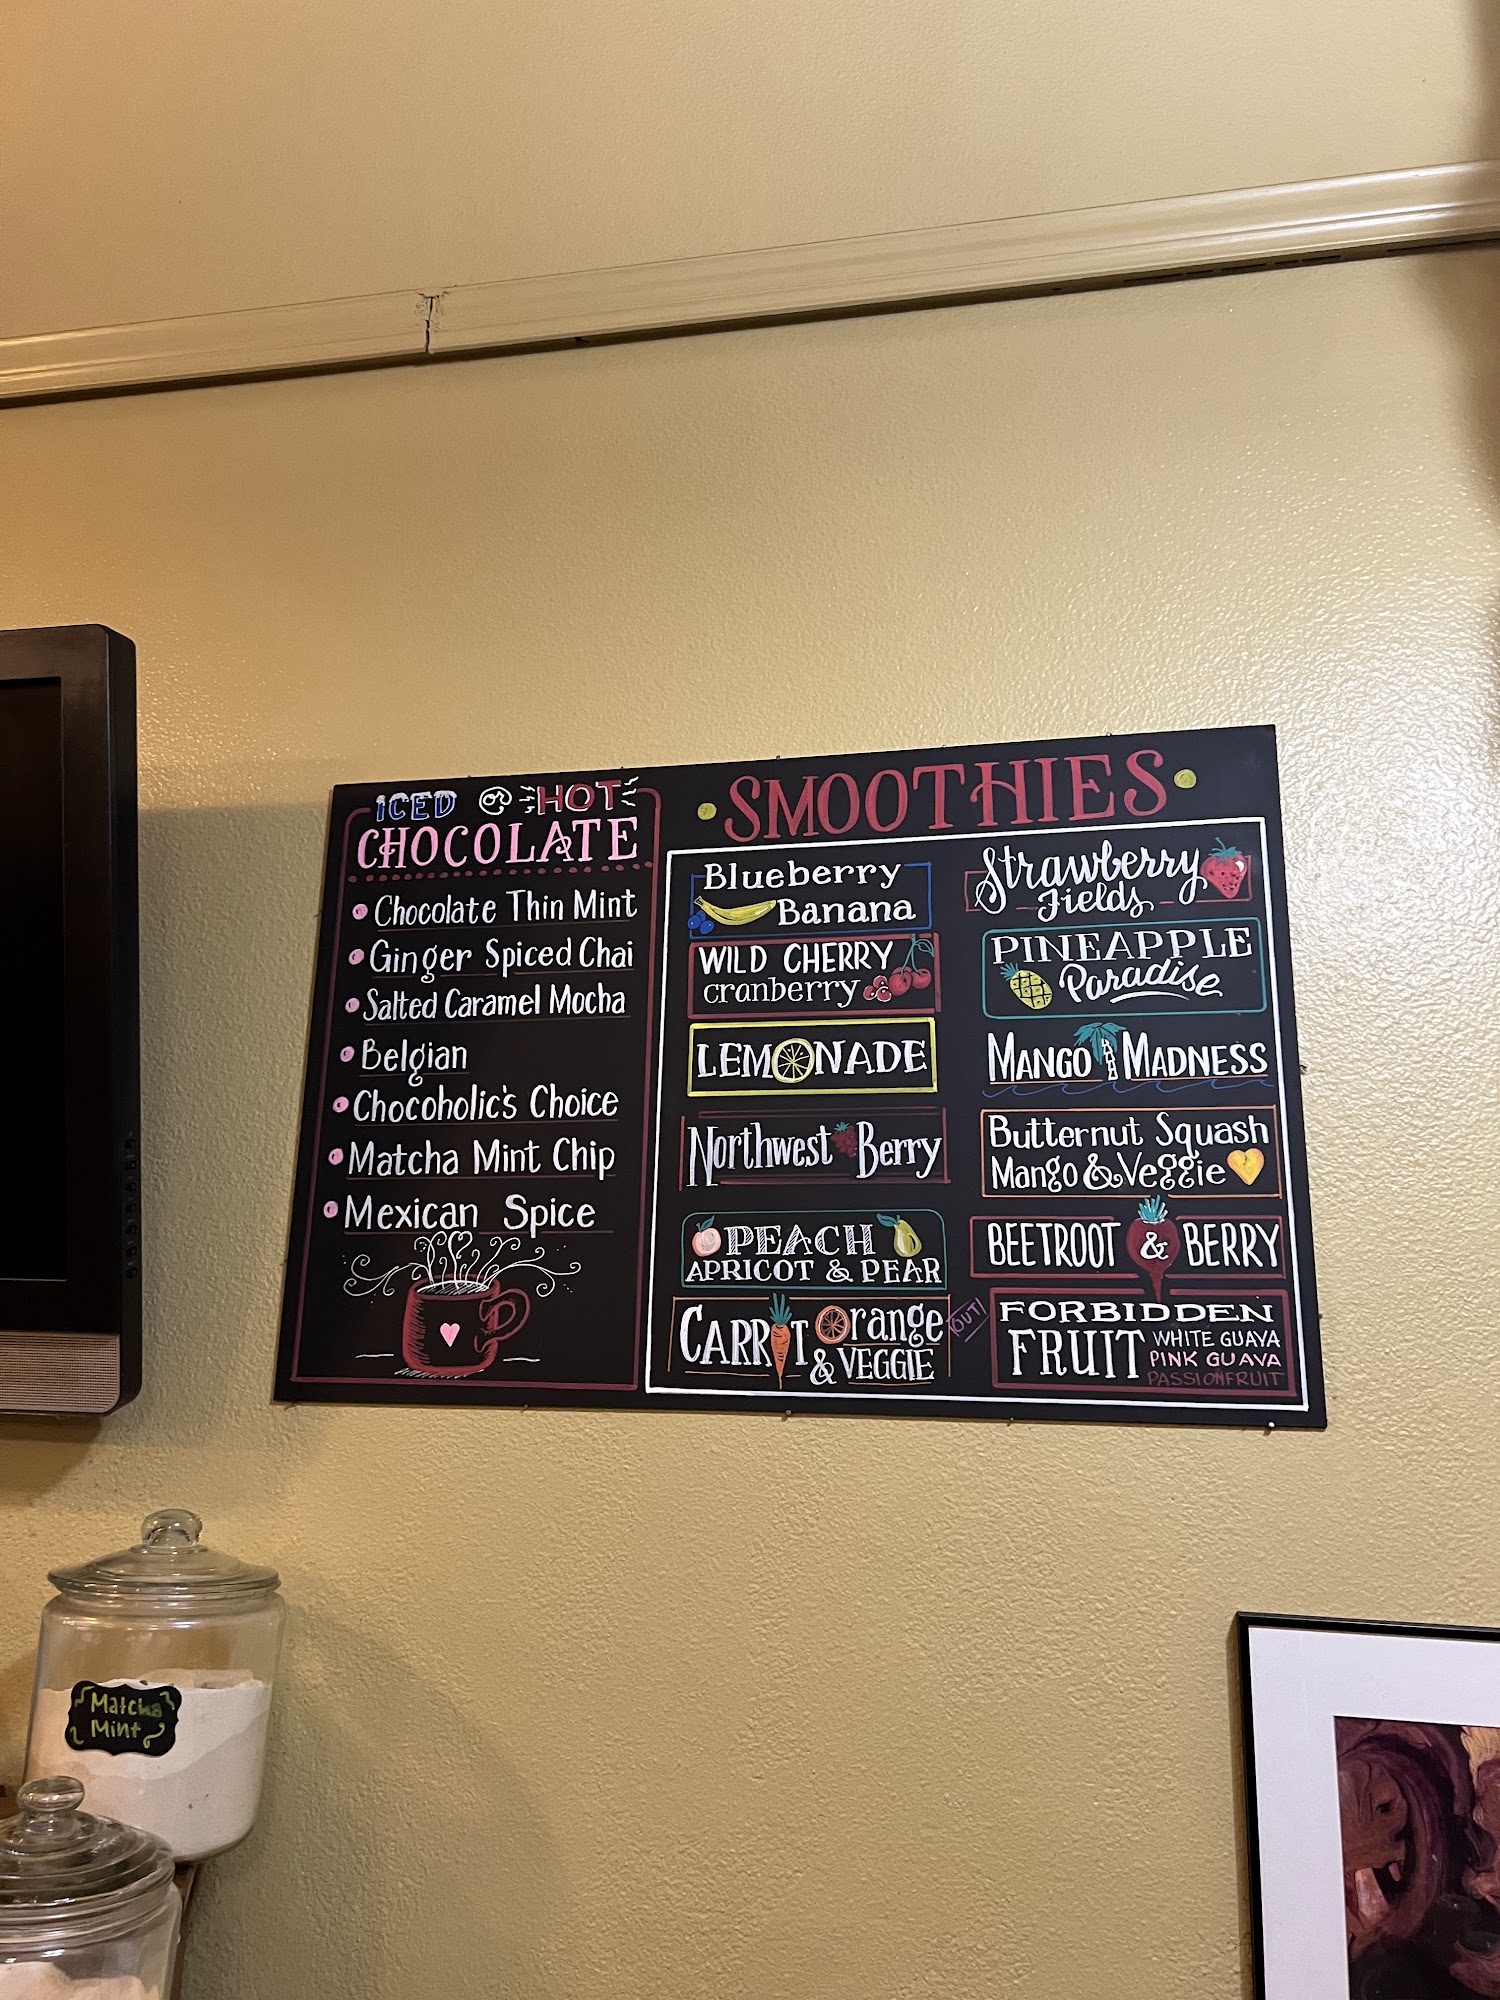 ICED or HOT
CHOCOLATE
Chocolate Thin Mint
Ginger Spiced Chai
Salted Caramel Mocha
Belgian
Chocoholic's Choice
Matcha Mint Chip
Mexican Spice
SMOOTHIES
Blueberry
Banana
WILD CHERRY
cranberry
LEMONADE
Northwest Berry
PEACH
APRICOT & PEAR
CARROT Orange
& VEGGIE
Strawberry
Fields
PINEAPPLE
Paradise
MANGO MADNESS
Butternut Squash
Mango & Veggie
BEETROOT & BERRY
OUT!
FORBIDDEN
FRUIT WHITE GUAVA
PINK GUAVA
PASSIONFRUIT
Matcha
Mint